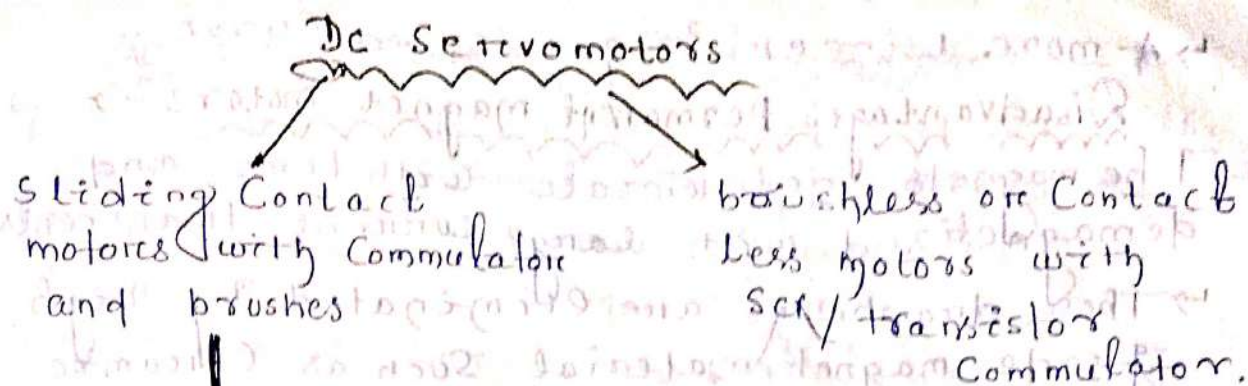 Dc Servomotors
Sliding Contact
motors with Commulator
and brushes
brushless or Contact
Less motors with
SCR/transistor
Commulator.